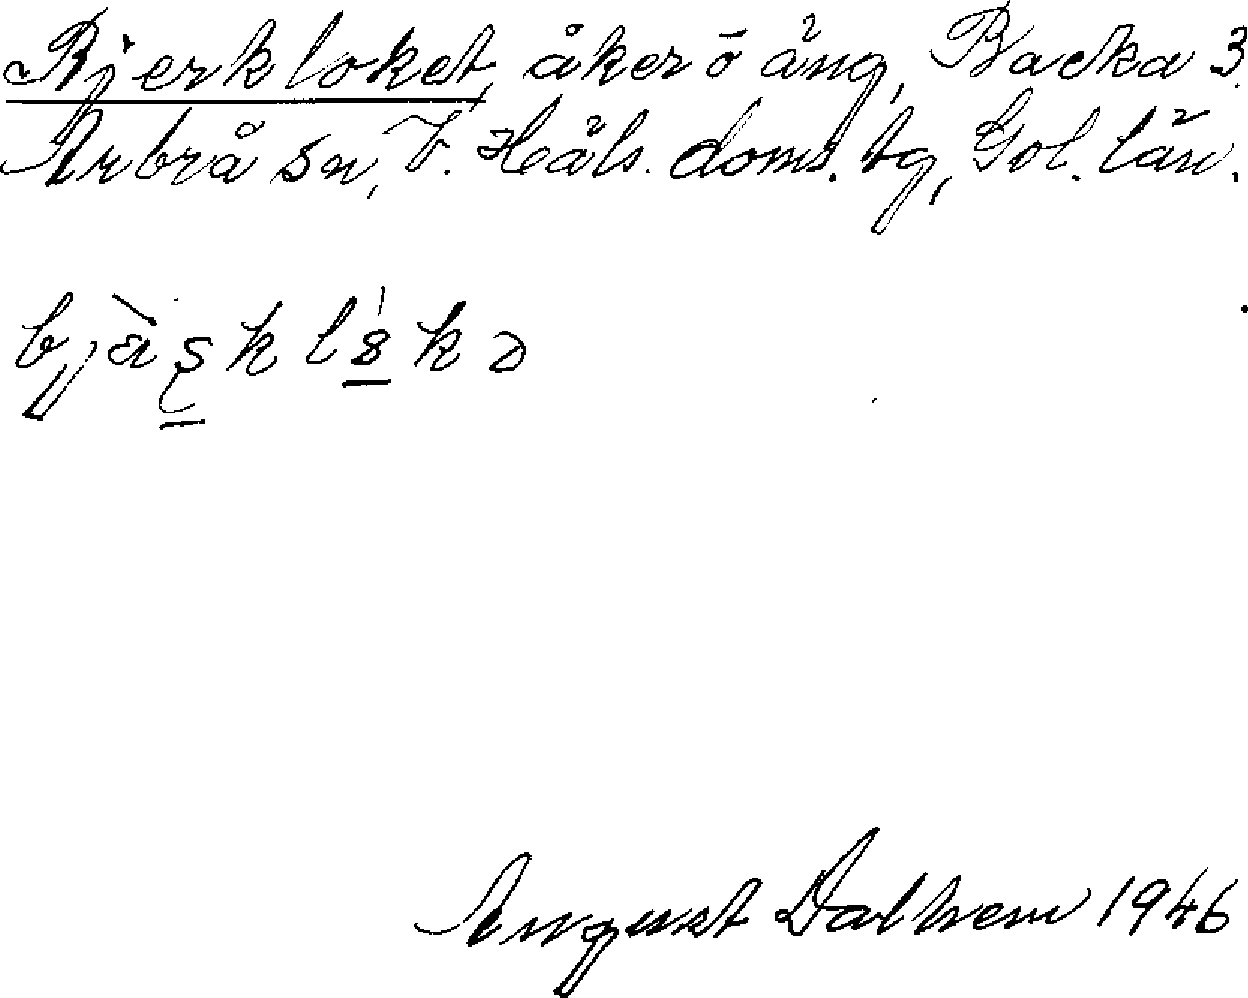 Bjerkloket, åker o äng, Backa 3
Arbrå sn, V. Häls. doms. tg, Gol. län.
August Dalhem 1946